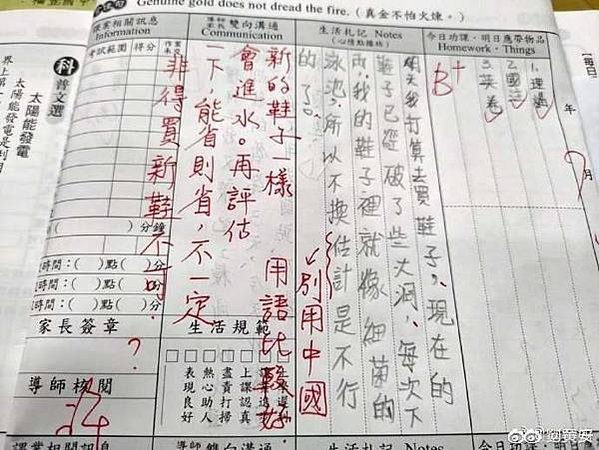 Genuine gold does not dread the fire.(真金不怕火煉。)
今日功課‧明日應帶物品
Homework‧Things
1.理過
2.國注
3.英卷
年
月
生活札記 Notes
(心情點播站)
B+
明天我打算去買鞋子,現在的
鞋子已經破了些大洞,每次下
雨,我的鞋子裡就像細菌的
泳池,所以不換估計是不行
的了。
別用中國
用語比較好.
導師
家長
雙向溝通
Communication
新的鞋子一樣
會進水。再評估
一下,能省則省,不一定
非得買新鞋不可.
課業相關訊息
Information
考試範圍
得分
分鐘
時間:( )點( )分
時間:( )點( )分
時間:( )點( )分
家長簽章
?
導師核閱
生活規範
上課認真
盡責打掃
熱心助人
表現良好
科
普文選
太陽能發電
太陽能發電是利用
界上第一
每日
課業相關訊息
導師 雙向溝通
生活札記 Notes
今日功課‧明日應帶物品
@黃安